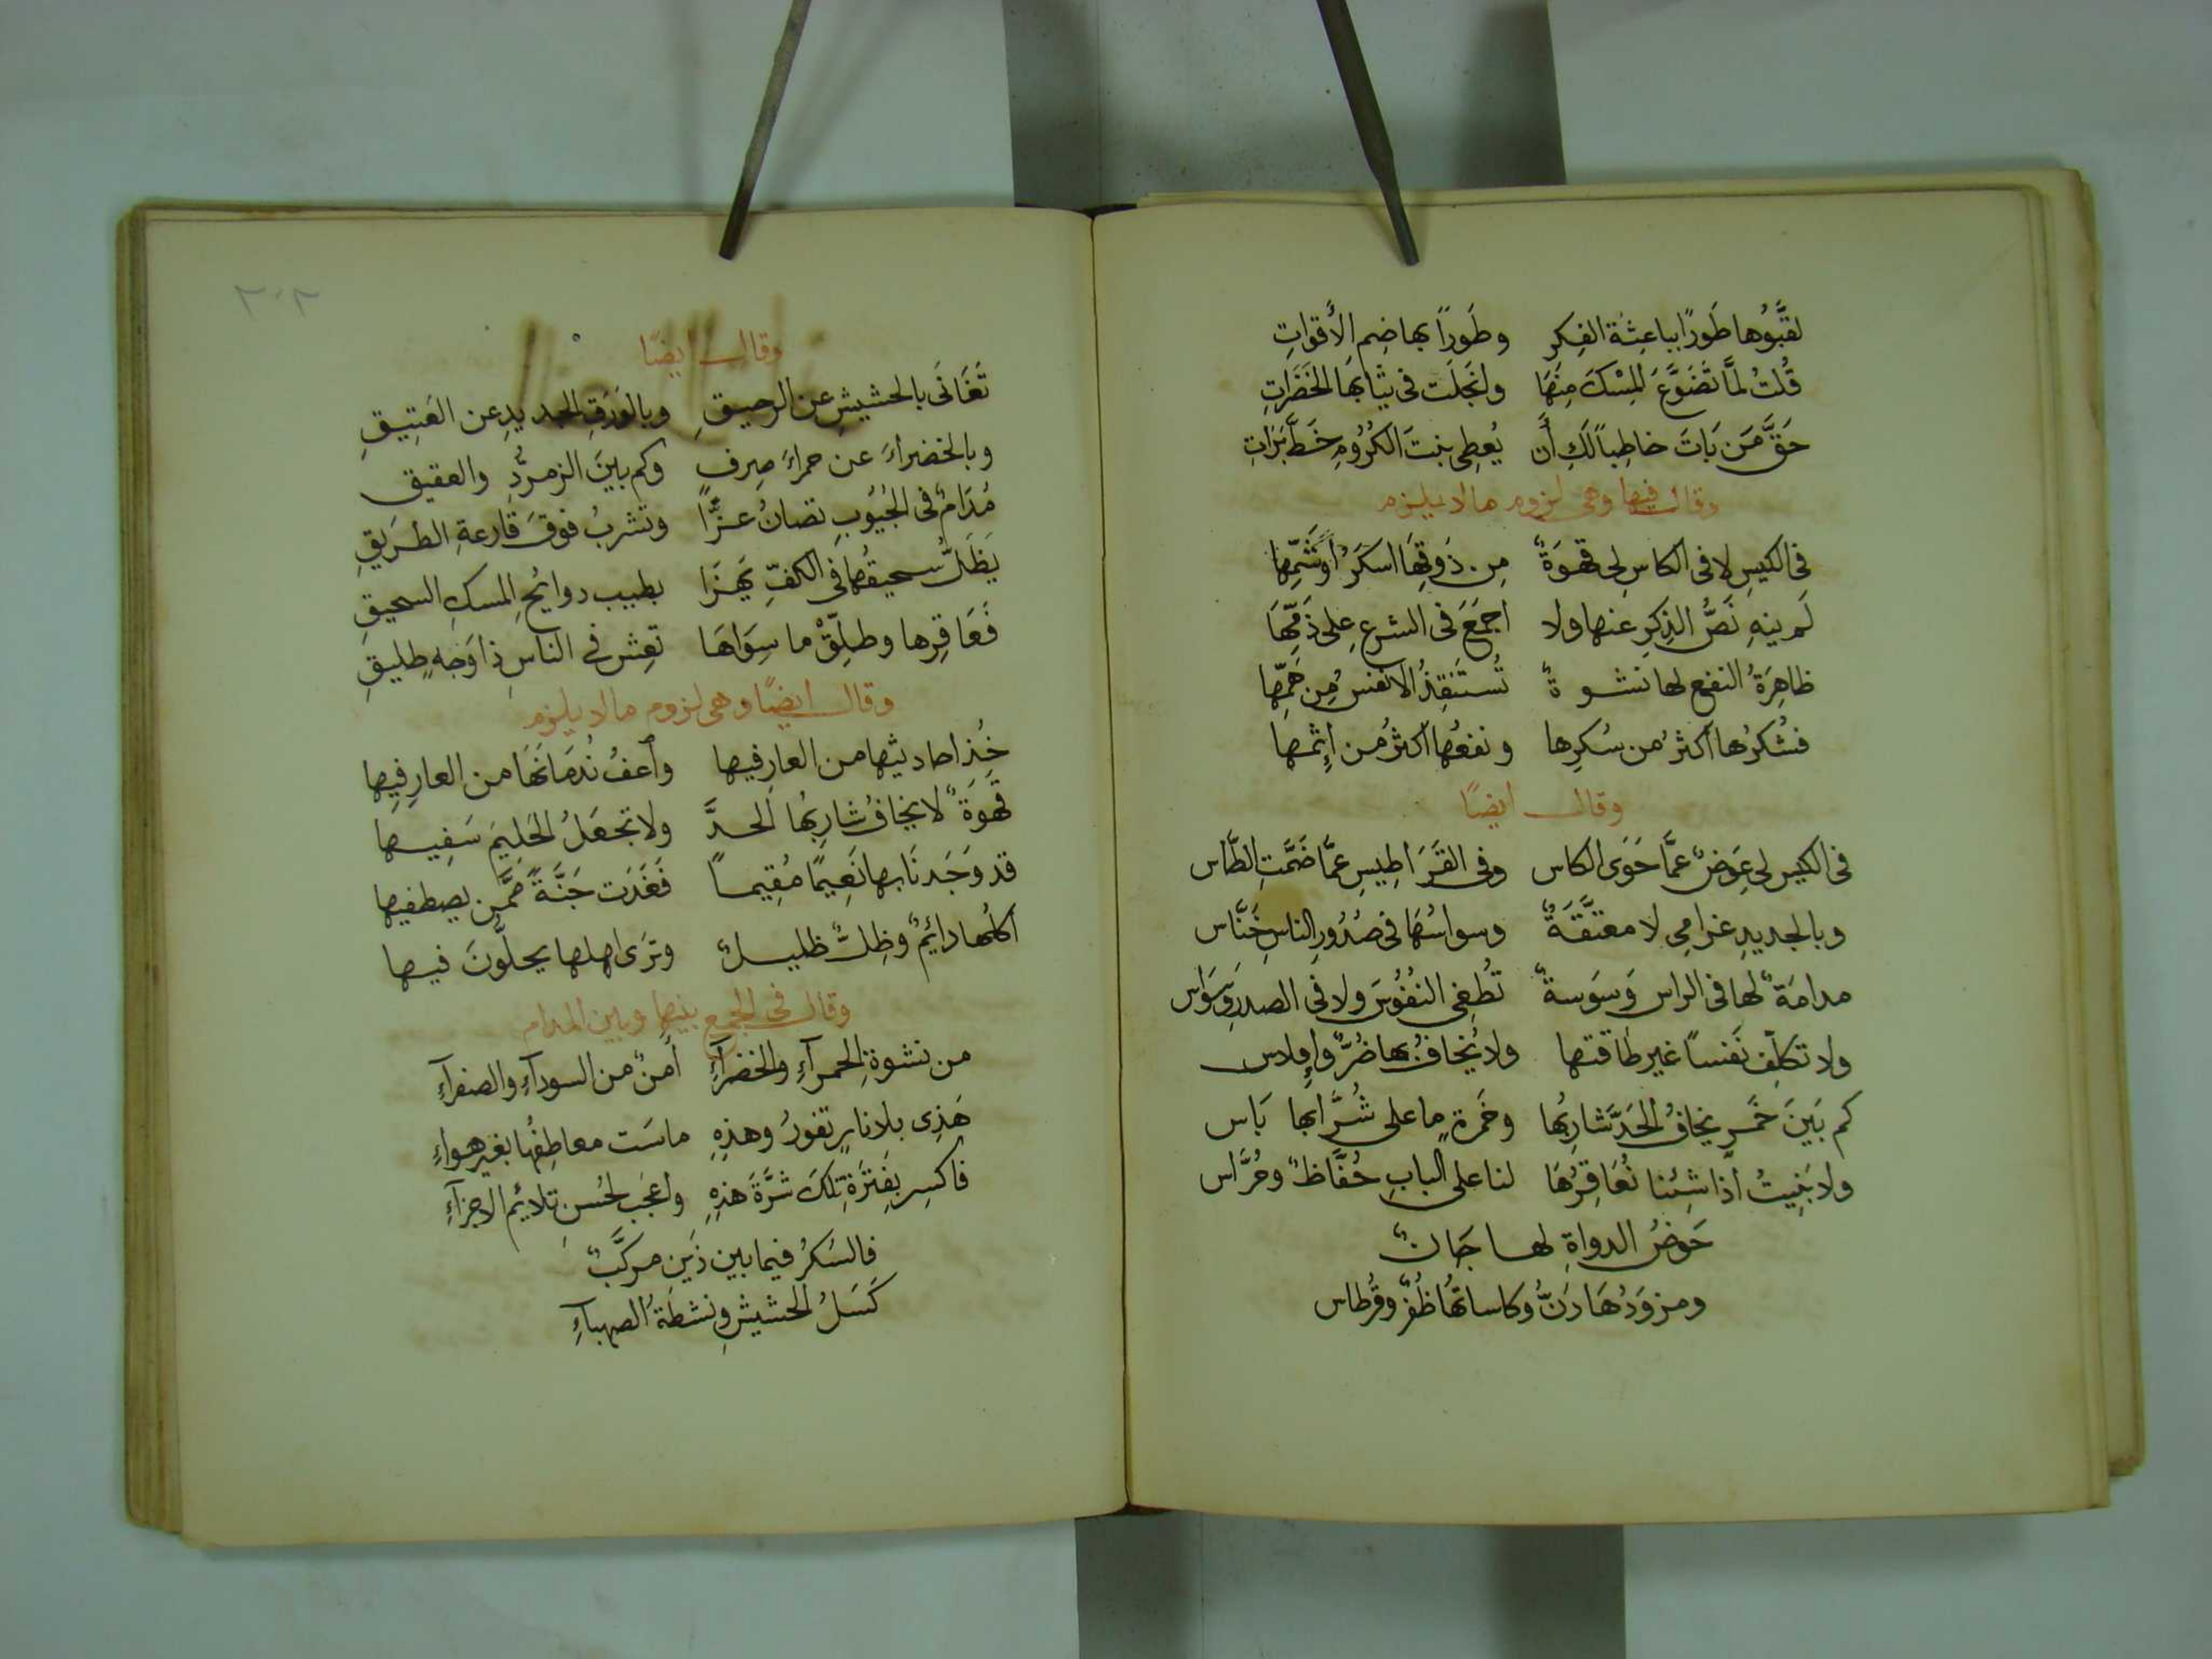 لقبَّوُها طَورًا بباعِثِة الفِكرِ وطَوراً بهاضِمِ الأَقواتِ
قُلتُ لمَّا تَضَوَّعَ المِسْكَ مِنهَا وانجَلَت فى ثيَابهَا الخَضَراتِ
حَقَّ مَن بَاتَ خاطِباً لَكِ أَن يُعطِى بنتَ الكُرُومِ خَطَّ بَرَاتِ
وقال فيها وهى لزوم مالا يلزم
فى الكيسِ لا فى الكاسِ لى قهوَةٌ مِن ذَوقِهَا اسكَرُ أو شَمِّها
لَم ينهِ نَصُّ الذِكرِ عنها ولا اجمَعَ فى الشرعِ على ذَمِّهَا
ظاهِرَةُ النفع لها نشوةٌ تُستَنقِذُ الانفسُ مِن هَمِّها
فشُكرُها اكثرُ من سُكرِها ونفعُها اكثرُ من إثمِها
وقال أيضًا
فى الكيس لى عِوَضٌ عمَّا حَوَى الكاس وفى القَرَاطِيسِ عمَّا ضَمَّتِ الطَّاس
وبالجديدِ غرامِى لا معتَّقَةٌ وسواسُهَا فى صُدُورِ الناسِ خَنَّاس
مدامَةٌ لها فى الراس وَسوَسةٌ تُطغِى النفُوسَ ولا فى الصدرِ وَسوَاس
ولا تكلِّف نَفساً غير طاقتها ولا يُخافُ بها ضُرٌّ وإفلاس
كم بَينَ خَمرٍ يخافُ الحَدَّ شارِبُها وخَمرَةٍ ما على شُرَّابها بَاس
ولا نَبِيتُ اذا شِئنا نُعَاقِرُهَا لنا على البابِ حُفَّاظٌ وحُرَّاس
حَوضُ الدواةِ لها جَانٌ
ومزوَدُهَا دَنٌّ وكاساتُها ظُفرٌ وقُرطاس
٢٠٢
وقال ايضًا
تَغَانَى بالحشيشِ عن الرحيقِ وبالوَرَقِ الجديدِ عن العَتِيقِ
وبالخضراءَ عن حمراءَ صِرفٍ وكم بينَ الزمرُّدِ والعقيق
مُدَامٌ فى الجُيُوبِ تصانُ عزًّا وتُشربُ فوقَ قَارعةِ الطرَيقِ
يَظَلُّ سحيقُها فى الكفِّ يَهزَا بطيبِ روايحِ المسكِ السحيقِ
فَعَاقِرها وطلِّقْ ما سِوَاهَا تعِش فى الناسِ ذا وَجهٍ طليقِ
وقال أيضًا وهى لزوم مالا يلزم
خُذ احاديثها من العارفيها وأعفُ نُدمَانَهَا من العارِفِيها
قَهوَةٌ لا يخافُ شارِبُها الحدَّ ولا تجعَلُ الحَلِيمَ سَفِيها
قد وَجَدنَا بها نَعِيمًا مُقِيماً فَغَدَت جَنَّةً ممَّن يصطفيها
اكلُها دائمٌ وظِلٌّ ظليلٌ وترَى اهلها يحلَّونَ فيها
وقال فى الجمع بينها وبين المدام
من نشوةِ الحمرآءِ والخضرآءِ أَمنٌ من السودآءِ والصفرآءِ
هَذِى بلا نارٍ تفورُ وهذِهِ ماسَت معاطِفُها بغيرِ هواءِ
فاكسِر بِفَترَةِ تِلكَ شرَّةَ هَذِهِ واعجَب لحُسنِ تلائمِ الاجزآءِ
فالسَكرُ فيما بين ذَينِ مركَّبٌ
كَسَلُ الحشيشِ ونشطَةُ الصهبآءِ